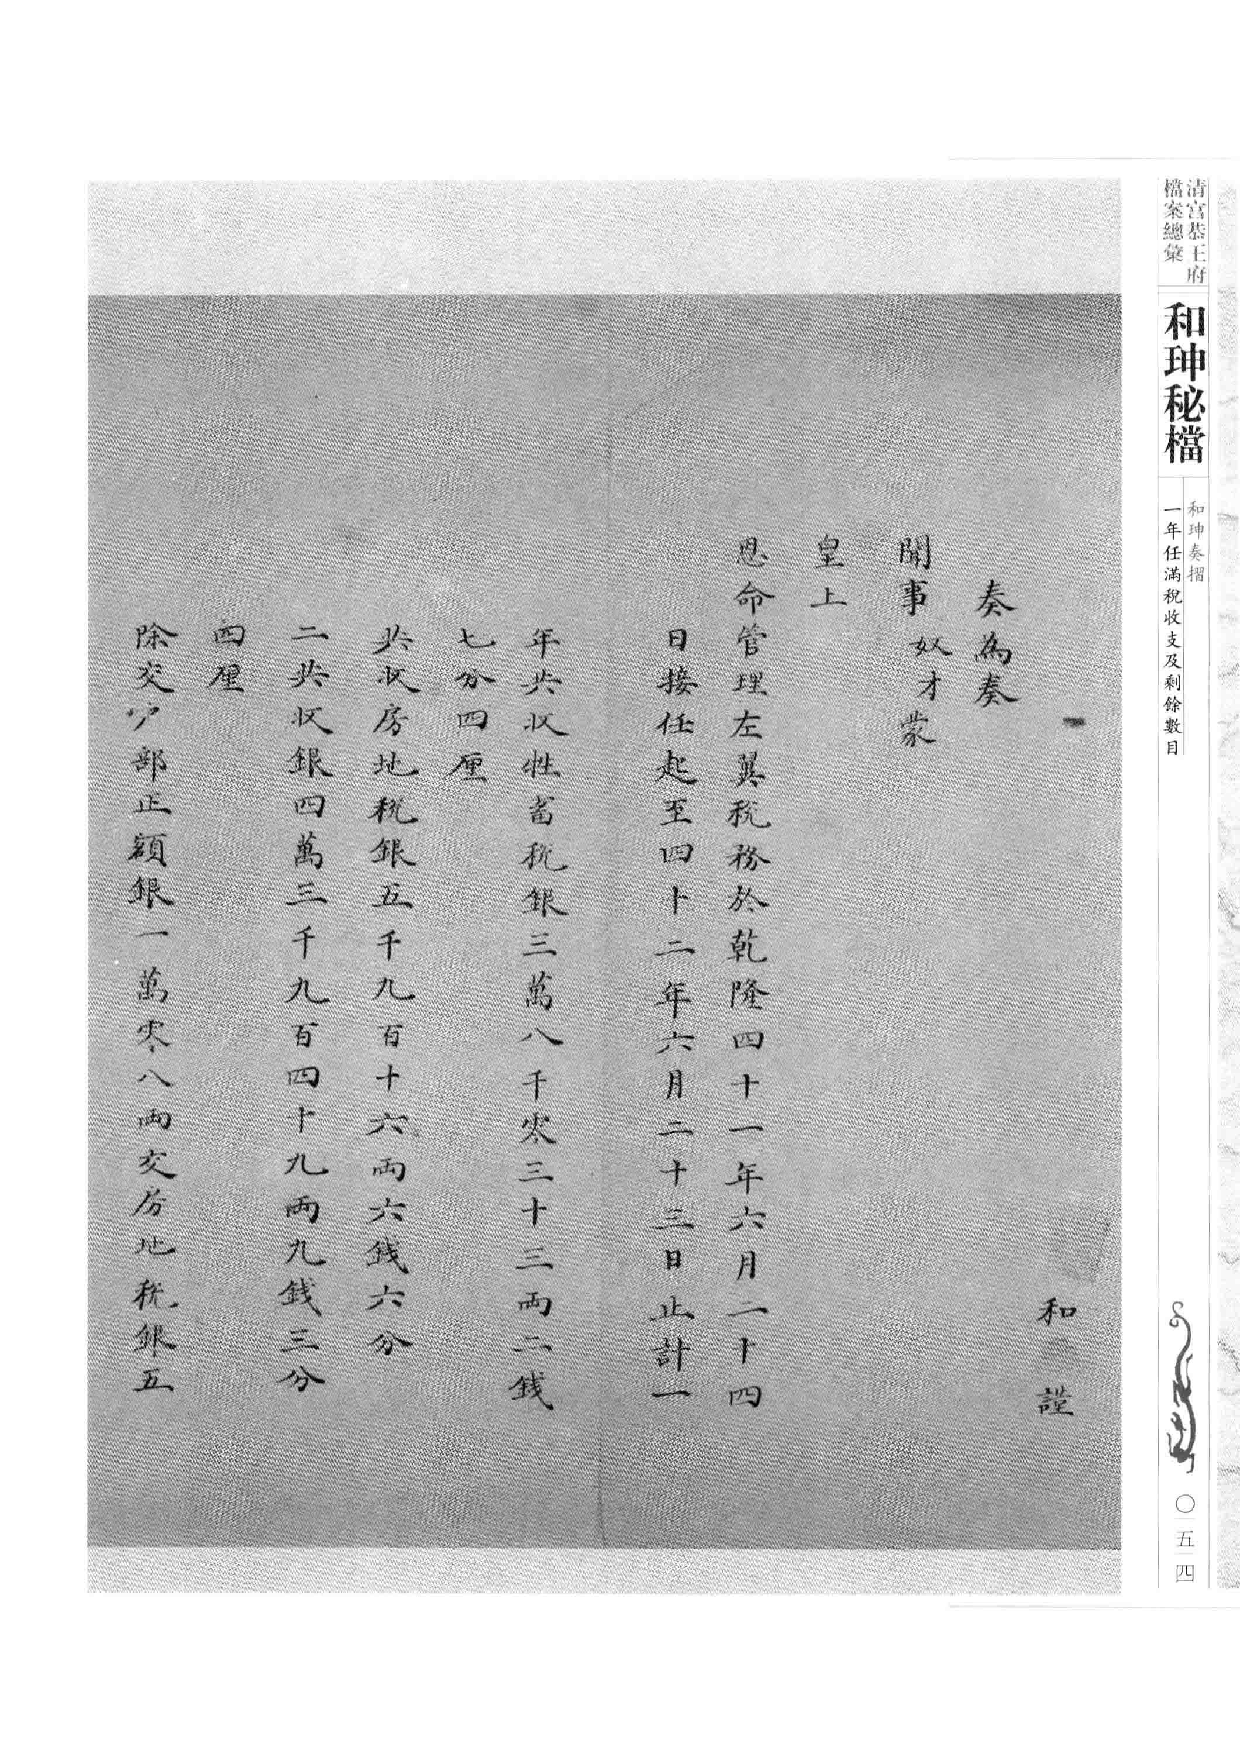 清宮恭王府
檔案總彙
和珅秘檔
和珅奏摺
一年任滿稅收支及剩餘數目
〇五四
和
謹
奏為奏
聞事奴才蒙
皇上
恩命管理左翼税務於乾隆四十一年六月二十四
日接任起至四十二年六月二十三日止計一
年共収牲畜税銀三萬八千零三十三両二銭
七分四厘
共収房地税銀五千九百十六両六銭六分
二共収銀四萬三千九百四十九両九銭三分
四厘
除交户部正額銀一萬零八両交房地税銀五